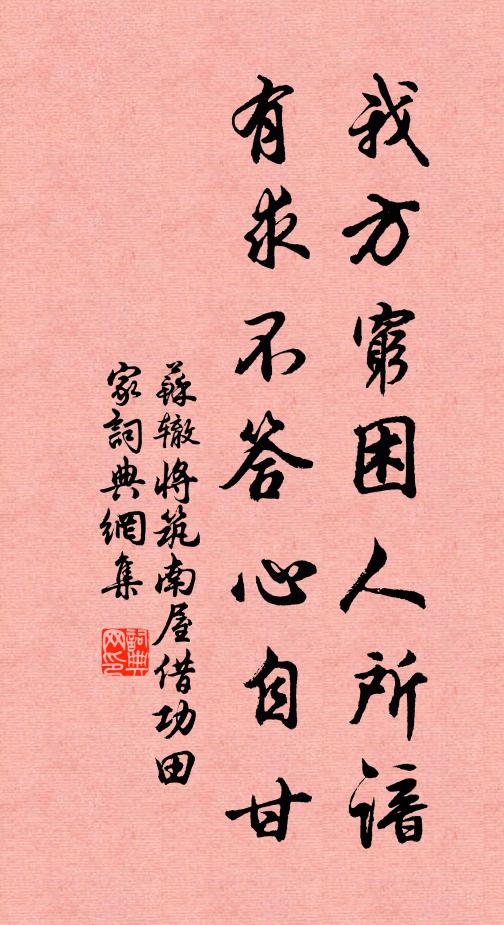 我方窮困人所諳
有求不答心自甘
蘇辙将筑南屋借功田
家詞典網集
詞典网印